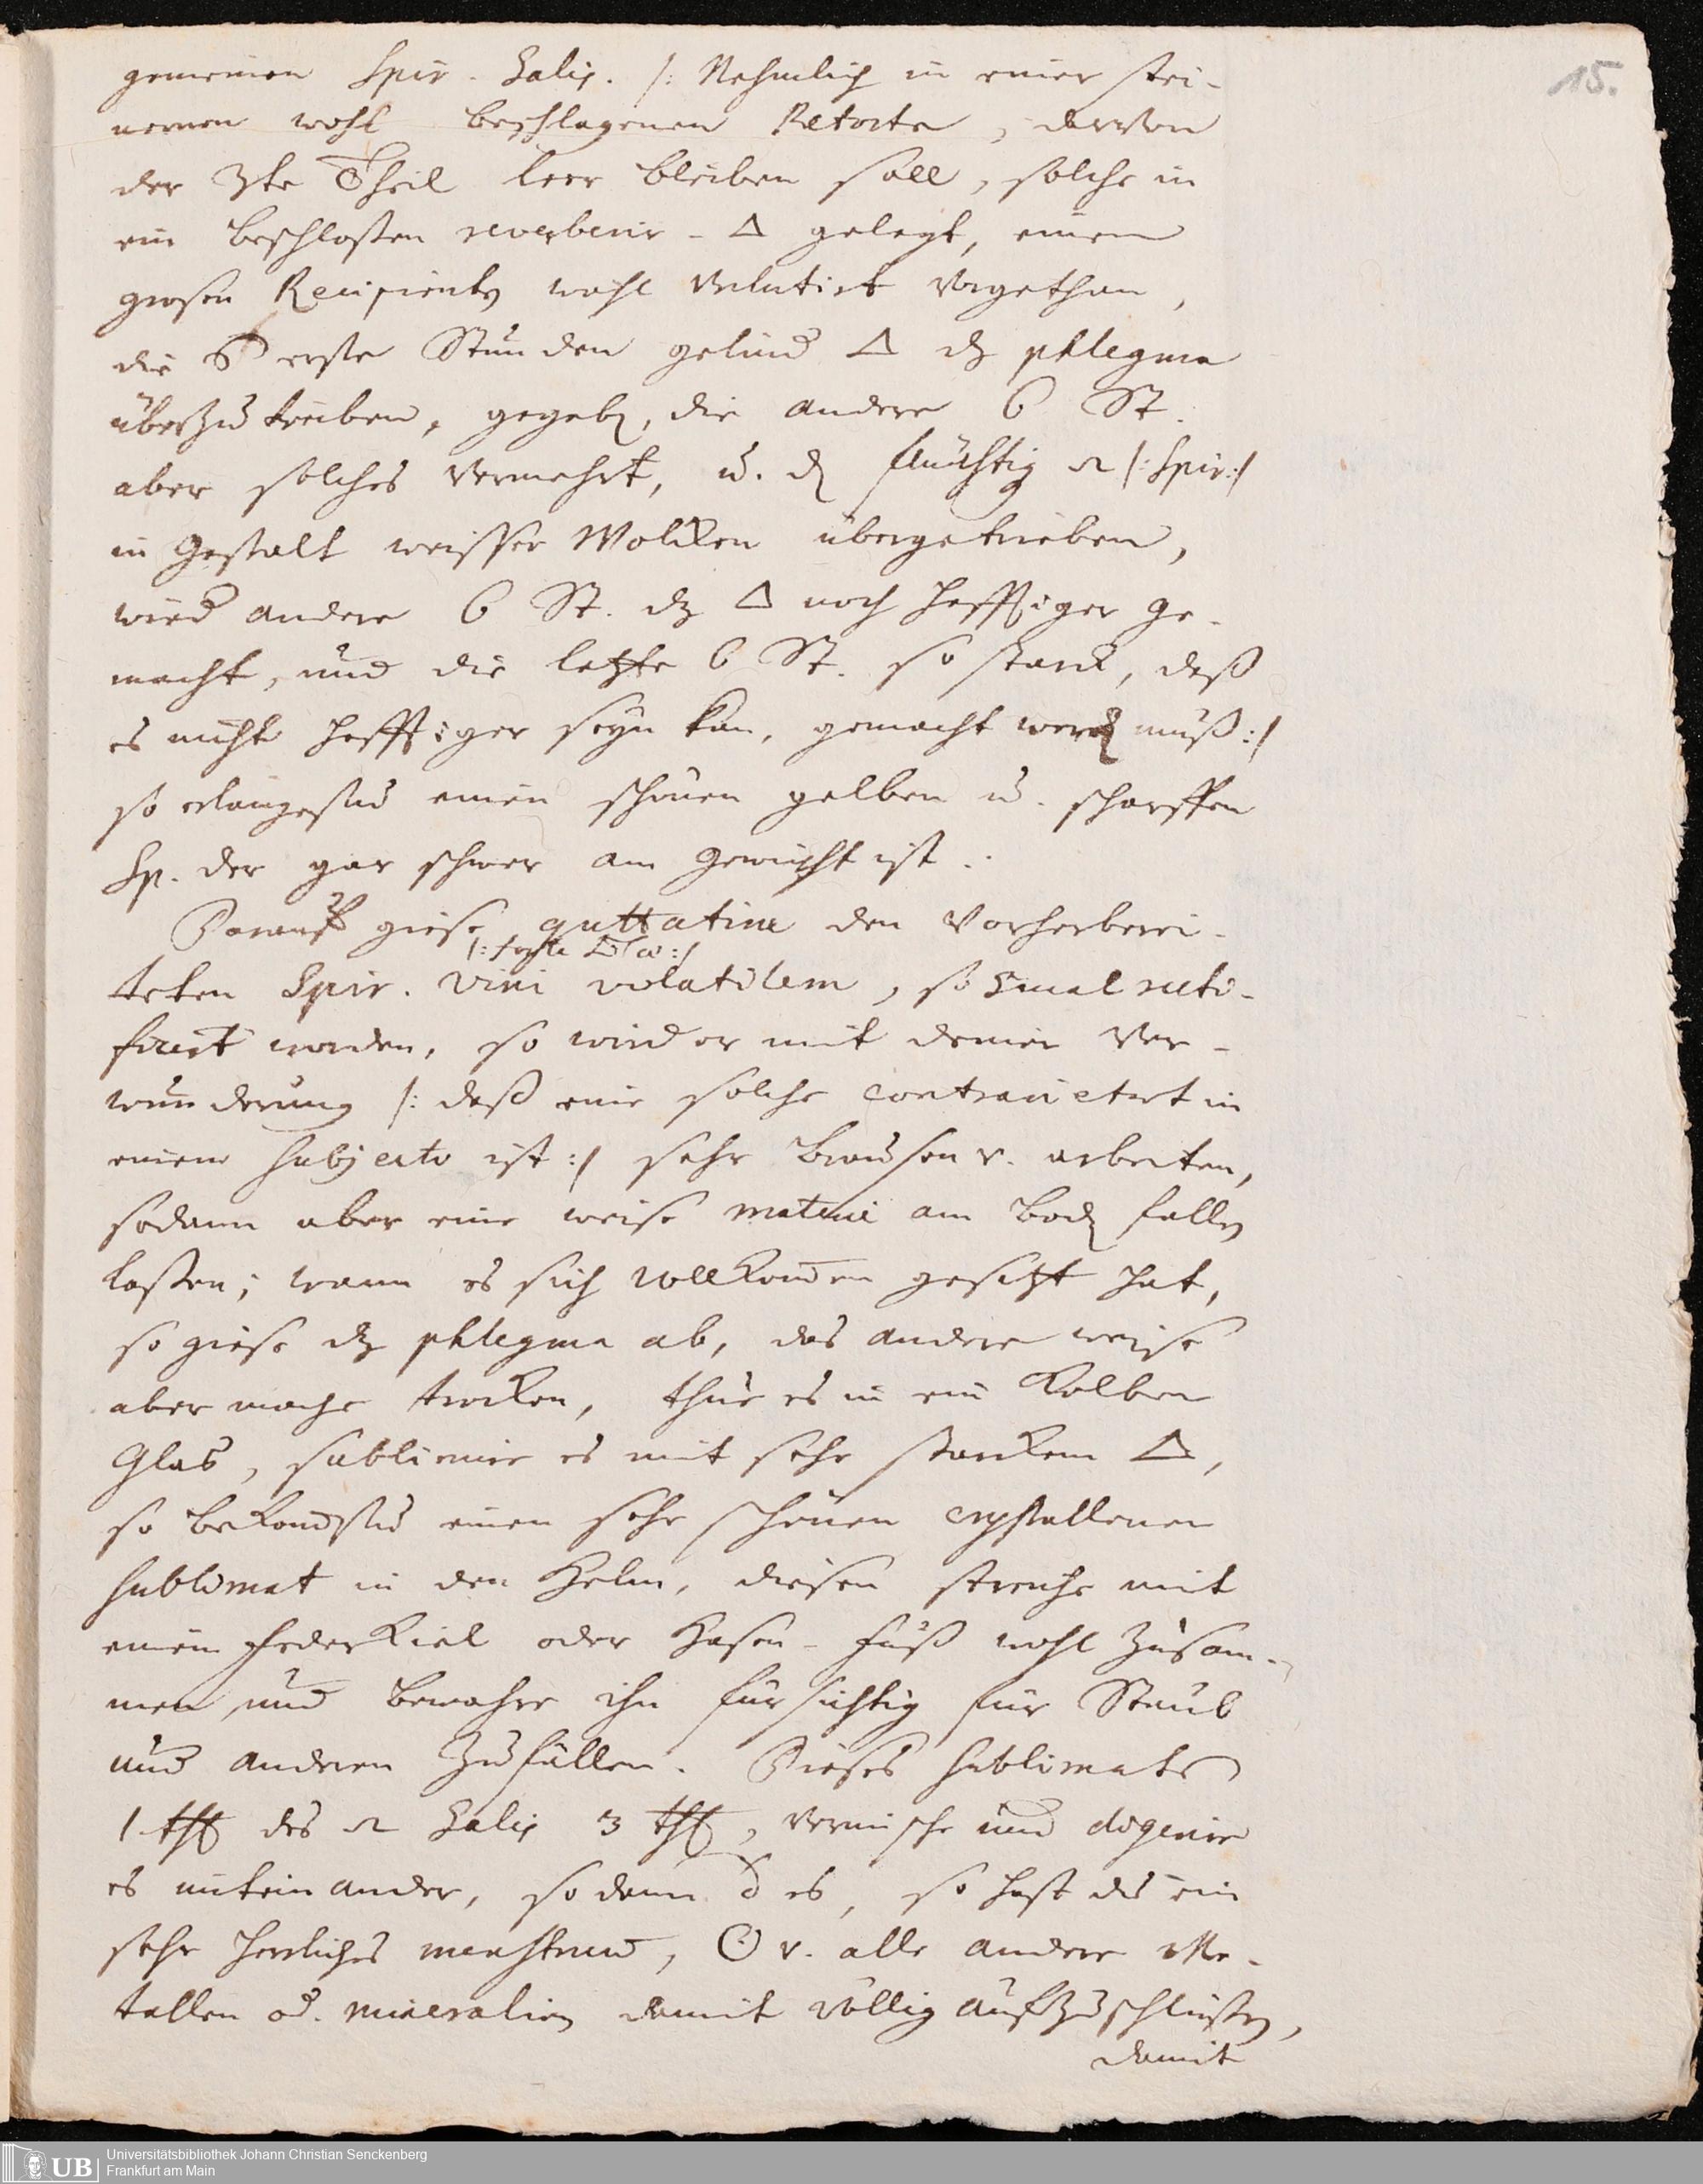 15.
gemeinen Spir. Salis. /: Nehmlich in einer stei-
nernen wohl beschlagenen Retorte, davon
der 3te Theil leer bleiben soll, solche in
ein beschloßen reverberir - △ gelegt, einen
grosen Recipienten wohl verlutirt vorgethan,
die 6 erste Stunden gelind △ dz phlegma
überzutreiben, gegeben, die andere 6 St.
aber solches vermehrt, u. den flüchtig /: Spir :/
in Gestalt weisser Wolcken übergetrieben,
wied andere 6 St. dz △ noch hefftiger ge-
macht, und die letzte 6 St. so starck, daß
es nicht hefftiger seyn kan, gemacht werden muß :/
so erlangestu einen schönen gelben u. scharffen
Sp. der gar schwer am Gewicht ist.
Darauf giese guttatim den vorherberei-
teten Spir. vini volatilem, so 5mal recti-
ficirt worden, so wird er mit deiner Ver-
wunderung /: daß eine solche contrarietæt in
einem Subjecto ist :/ sehr brausen u. arbeiten,
sodann aber eine weise materie am Boden fallen
laßen; wann es sich vollkomen gesetzt hat,
so giese dz phlegma ab, das andere weise
aber mache trocken, thue es in ein Kolben
Glas, sublimir es mit sehr starckem △,
so bekomstu einen sehr schönen crystallenen
Sublimat in den Helm, diesen streiche mit
einem FederKiel oder Hasen-Fuß wohl zusam-
men, und bewahre ihn fürsichtig für Staub
und anderen Zufällen. Dieses Sublimats
1 thl des Salis 3 thl, vermische und digerire
es miteinander, sodann es, so hast du ein
sehr herrliches menstruum, ☉ u. alle andere Me-
tallen od. mineralien damit völlig aufzuschlüßen,
damit
UB Universitätsbibliothek Johann Christian Senckenberg
Frankfurt am Main